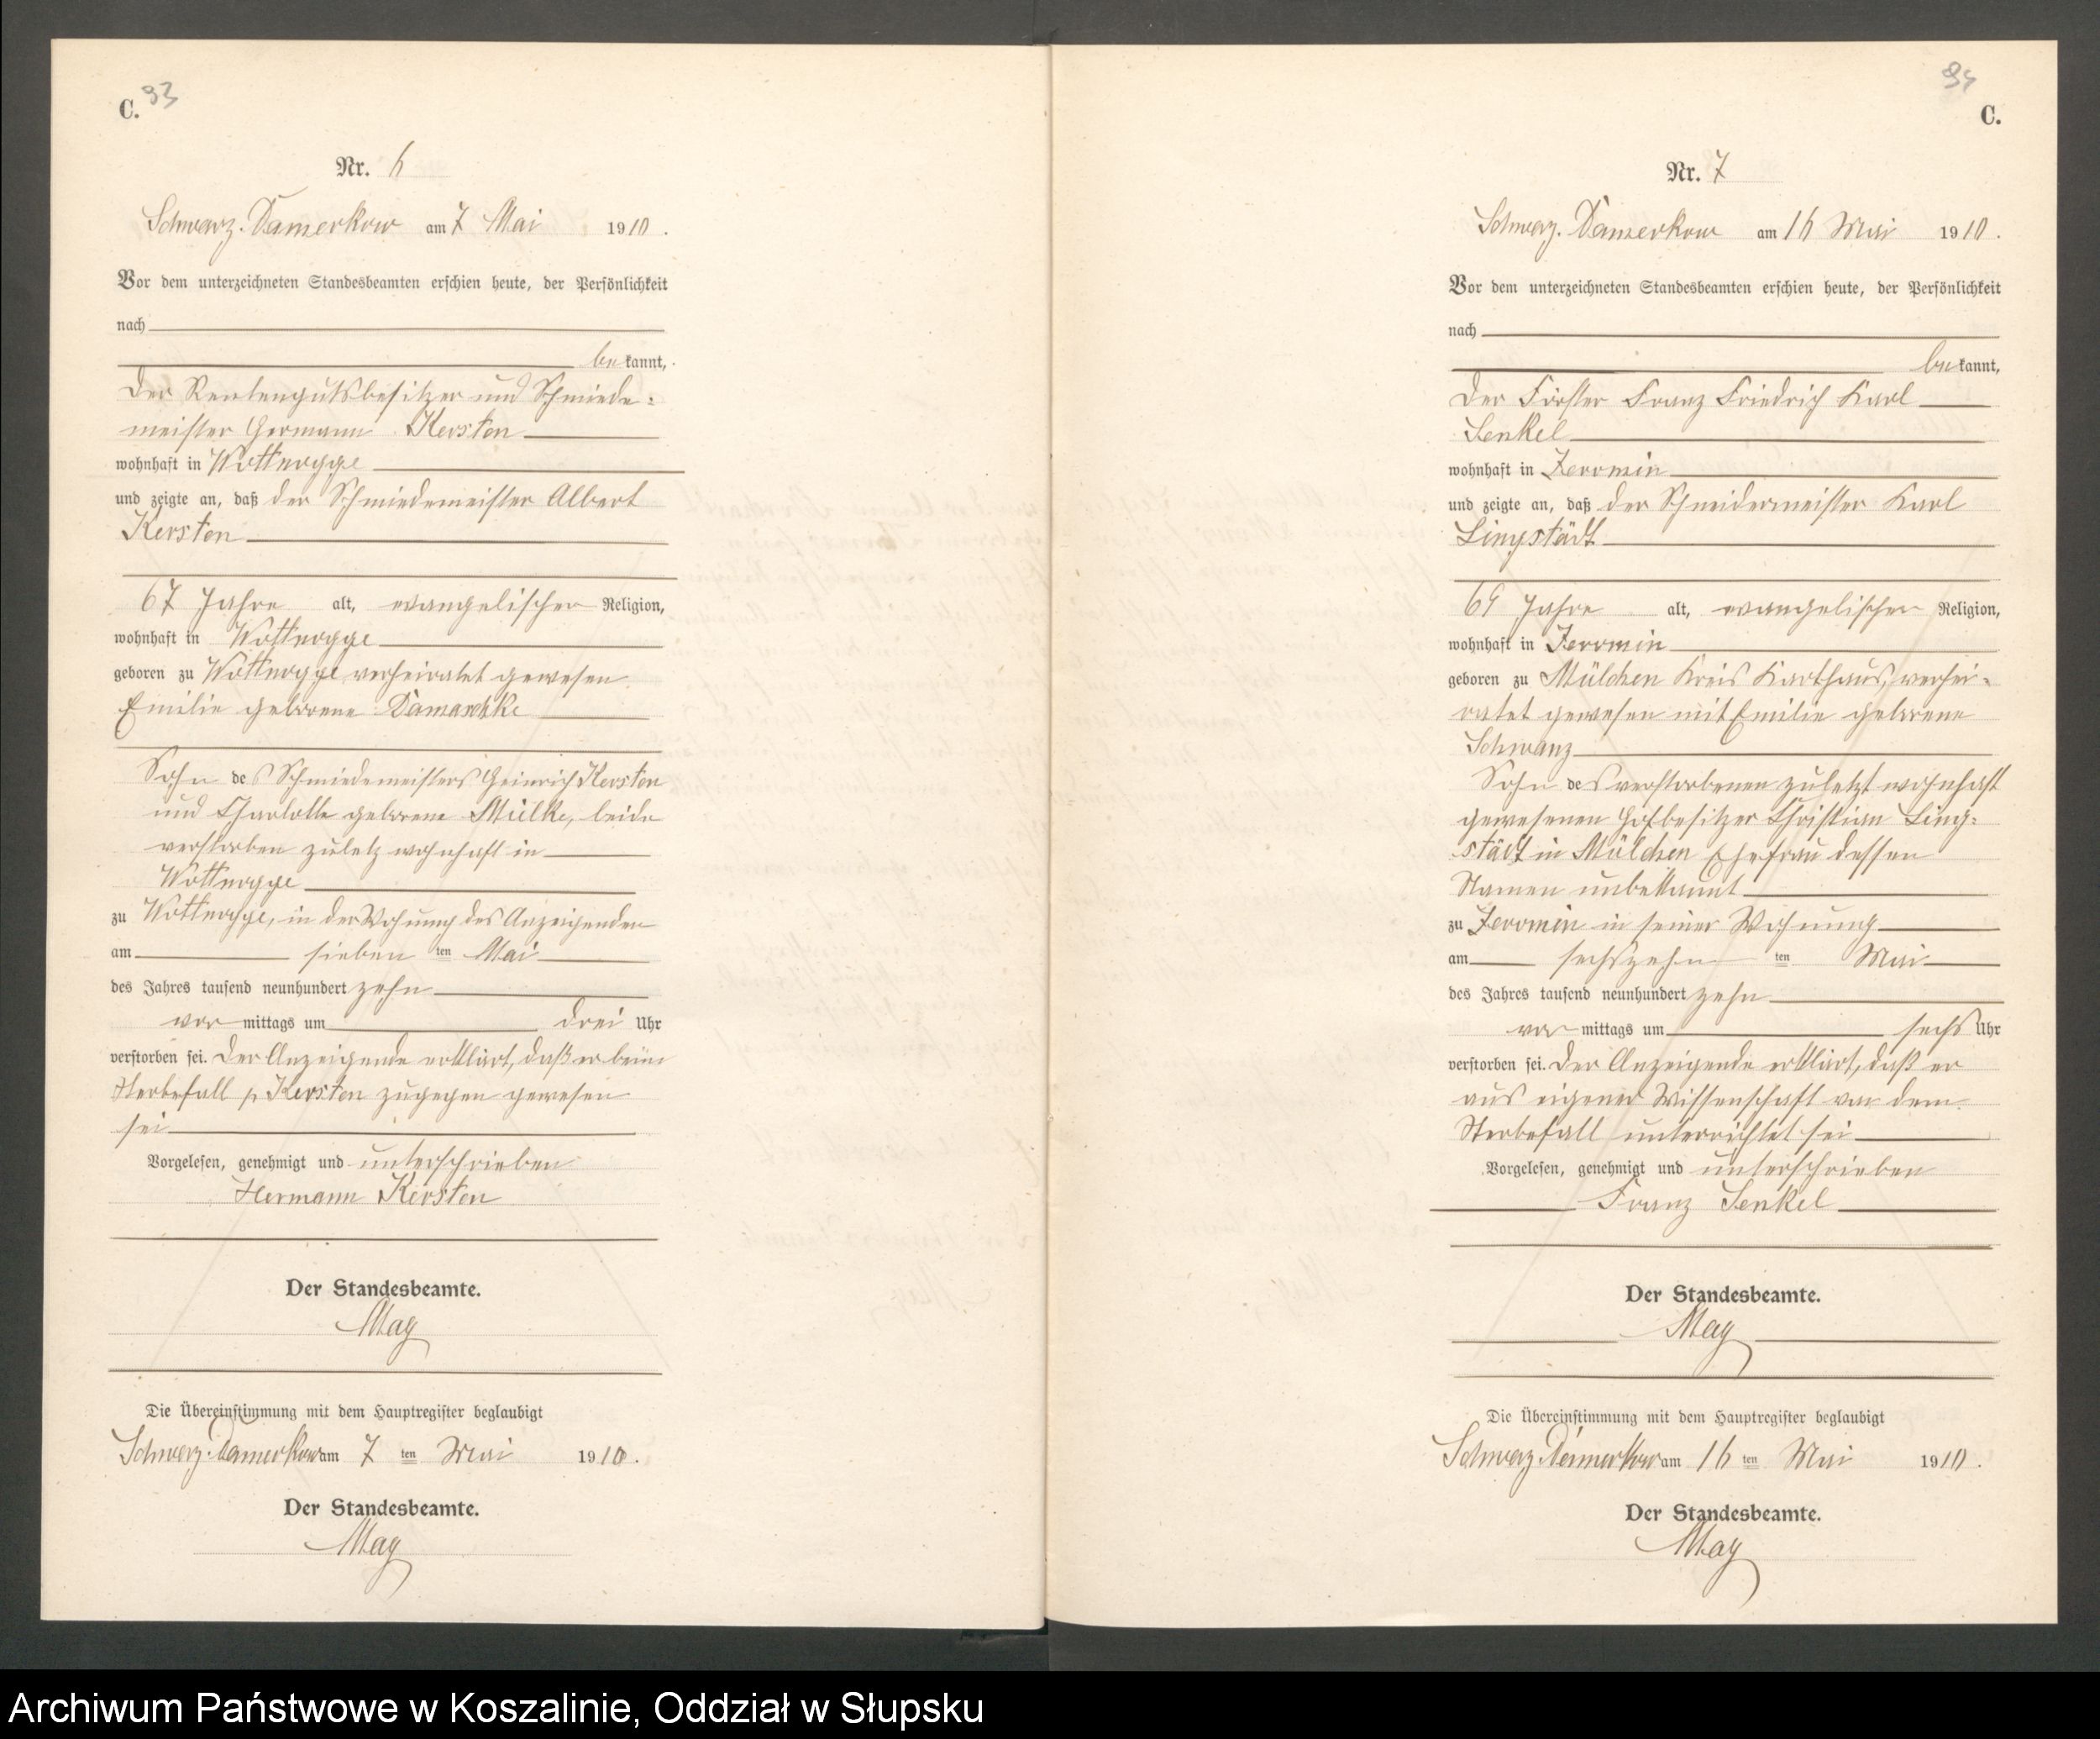 C. 93
Nr. 6
Schwarz. Damerkow am 7 Mai 1910.
Vor dem unterzeichneten Standesbeamten erschien heute, der Persönlichkeit
nach
bekannt,
der Rentengutsbesitzer und Schmiede-
meister Hermann Kersten
wohnhaft in Wottnogge
und zeigte an, daß der Schmiedemeister Albert
Kersten
67 Jahre alt, evangelischer Religion,
wohnhaft in Wottnogge
geboren zu Wottnogge, verheiratet gewesen
Emilie geborene Damaschke
Sohn des Schmiedemeisters Heinrich Kersten
und Charlotte geborene Mülke, beide
verstorben zuletz wohnhaft in
Wottnogge
zu Wottnogge, in der Wohnung des Anzeigenden
am sieben ten Mai
des Jahres tausend neunhundert zehn
vor mittags um drei Uhr
verstorben sei. Der Anzeigende erklärt, daß er beim
Sterbefall p. Kersten zugegen gewesen
sei
Vorgelesen, genehmigt und unterschrieben
Hermann Kersten
Der Standesbeamte.
May
Die Übereinstimmung mit dem Hauptregister beglaubigt
Schwarz. Damerkow am 7 ten Mai 1910.
Der Standesbeamte.
May
94
C.
Nr. 7
Schwarz. Damerkow am 16 Mai 1910.
Vor dem unterzeichneten Standesbeamten erschien heute, der Persönlichkeit
nach
bekannt,
der Förster Franz Friedrich Karl
Senkel
wohnhaft in Zeromin
und zeigte an, daß der Schneidermeister Karl
Lingstädt
69 Jahre alt, evangelischer Religion,
wohnhaft in Zeromin
geboren zu Mülchen Kreis Karthaus, verhei-
ratet gewesen mit Emilie geborene
Schwanz
Sohn des verstorbenen zuletzt wohnhaft
gewesenen Hofbesitzer Christian Ling-
städt in Mülchen Ehefrau dessen
Namen unbekannt
zu Zeromin in seiner Wohnung
am sechszehn ten Mai
des Jahres tausend neunhundert zehn
vor mittags um sechs Uhr
verstorben sei. Der Anzeigende erklärt, daß er
aus eigener Wissenschaft von dem
Sterbefall unterrichtet sei
Vorgelesen, genehmigt und unterschrieben
Franz Senkel
Der Standesbeamte.
May
Die Übereinstimmung mit dem Hauptregister beglaubigt
Schwarz. Damerkow am 16 ten Mai 1910.
Der Standesbeamte.
May
Archiwum Państwowe w Koszalinie, Oddział w Słupsku